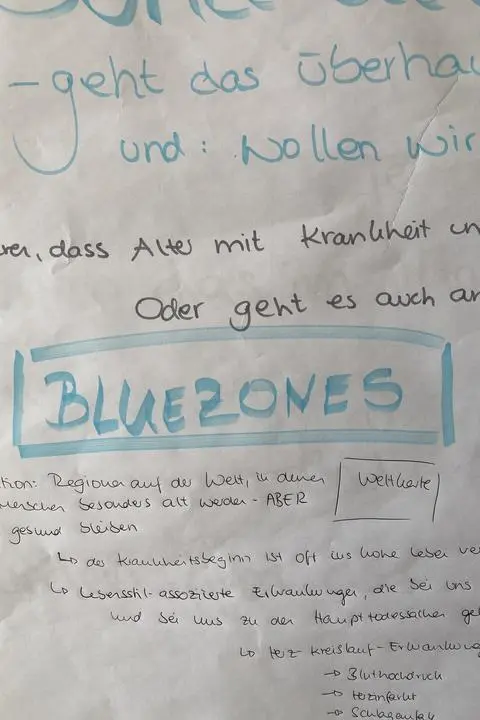 - geht das überhau
und: Wollen wir
dass Alter mit Krankheit un
Oder geht es auch an
BLUEZONES
tion: Regionen auf der Welt, in denen
Menschen besonders alt werden - ABER
gesund bleiben
Weltkarte
↳ der Krankheitsbeginn ist oft ins hohe Leben ver
↳ Lebensstil-assoziierte Erkrankungen, die bei uns
und bei uns zu den Haupttodessachen ge
↳ Herz-Kreislauf-Erkrankung
→ Bluthochdruck
→ Herzinfarkt
→ Schlaganfall